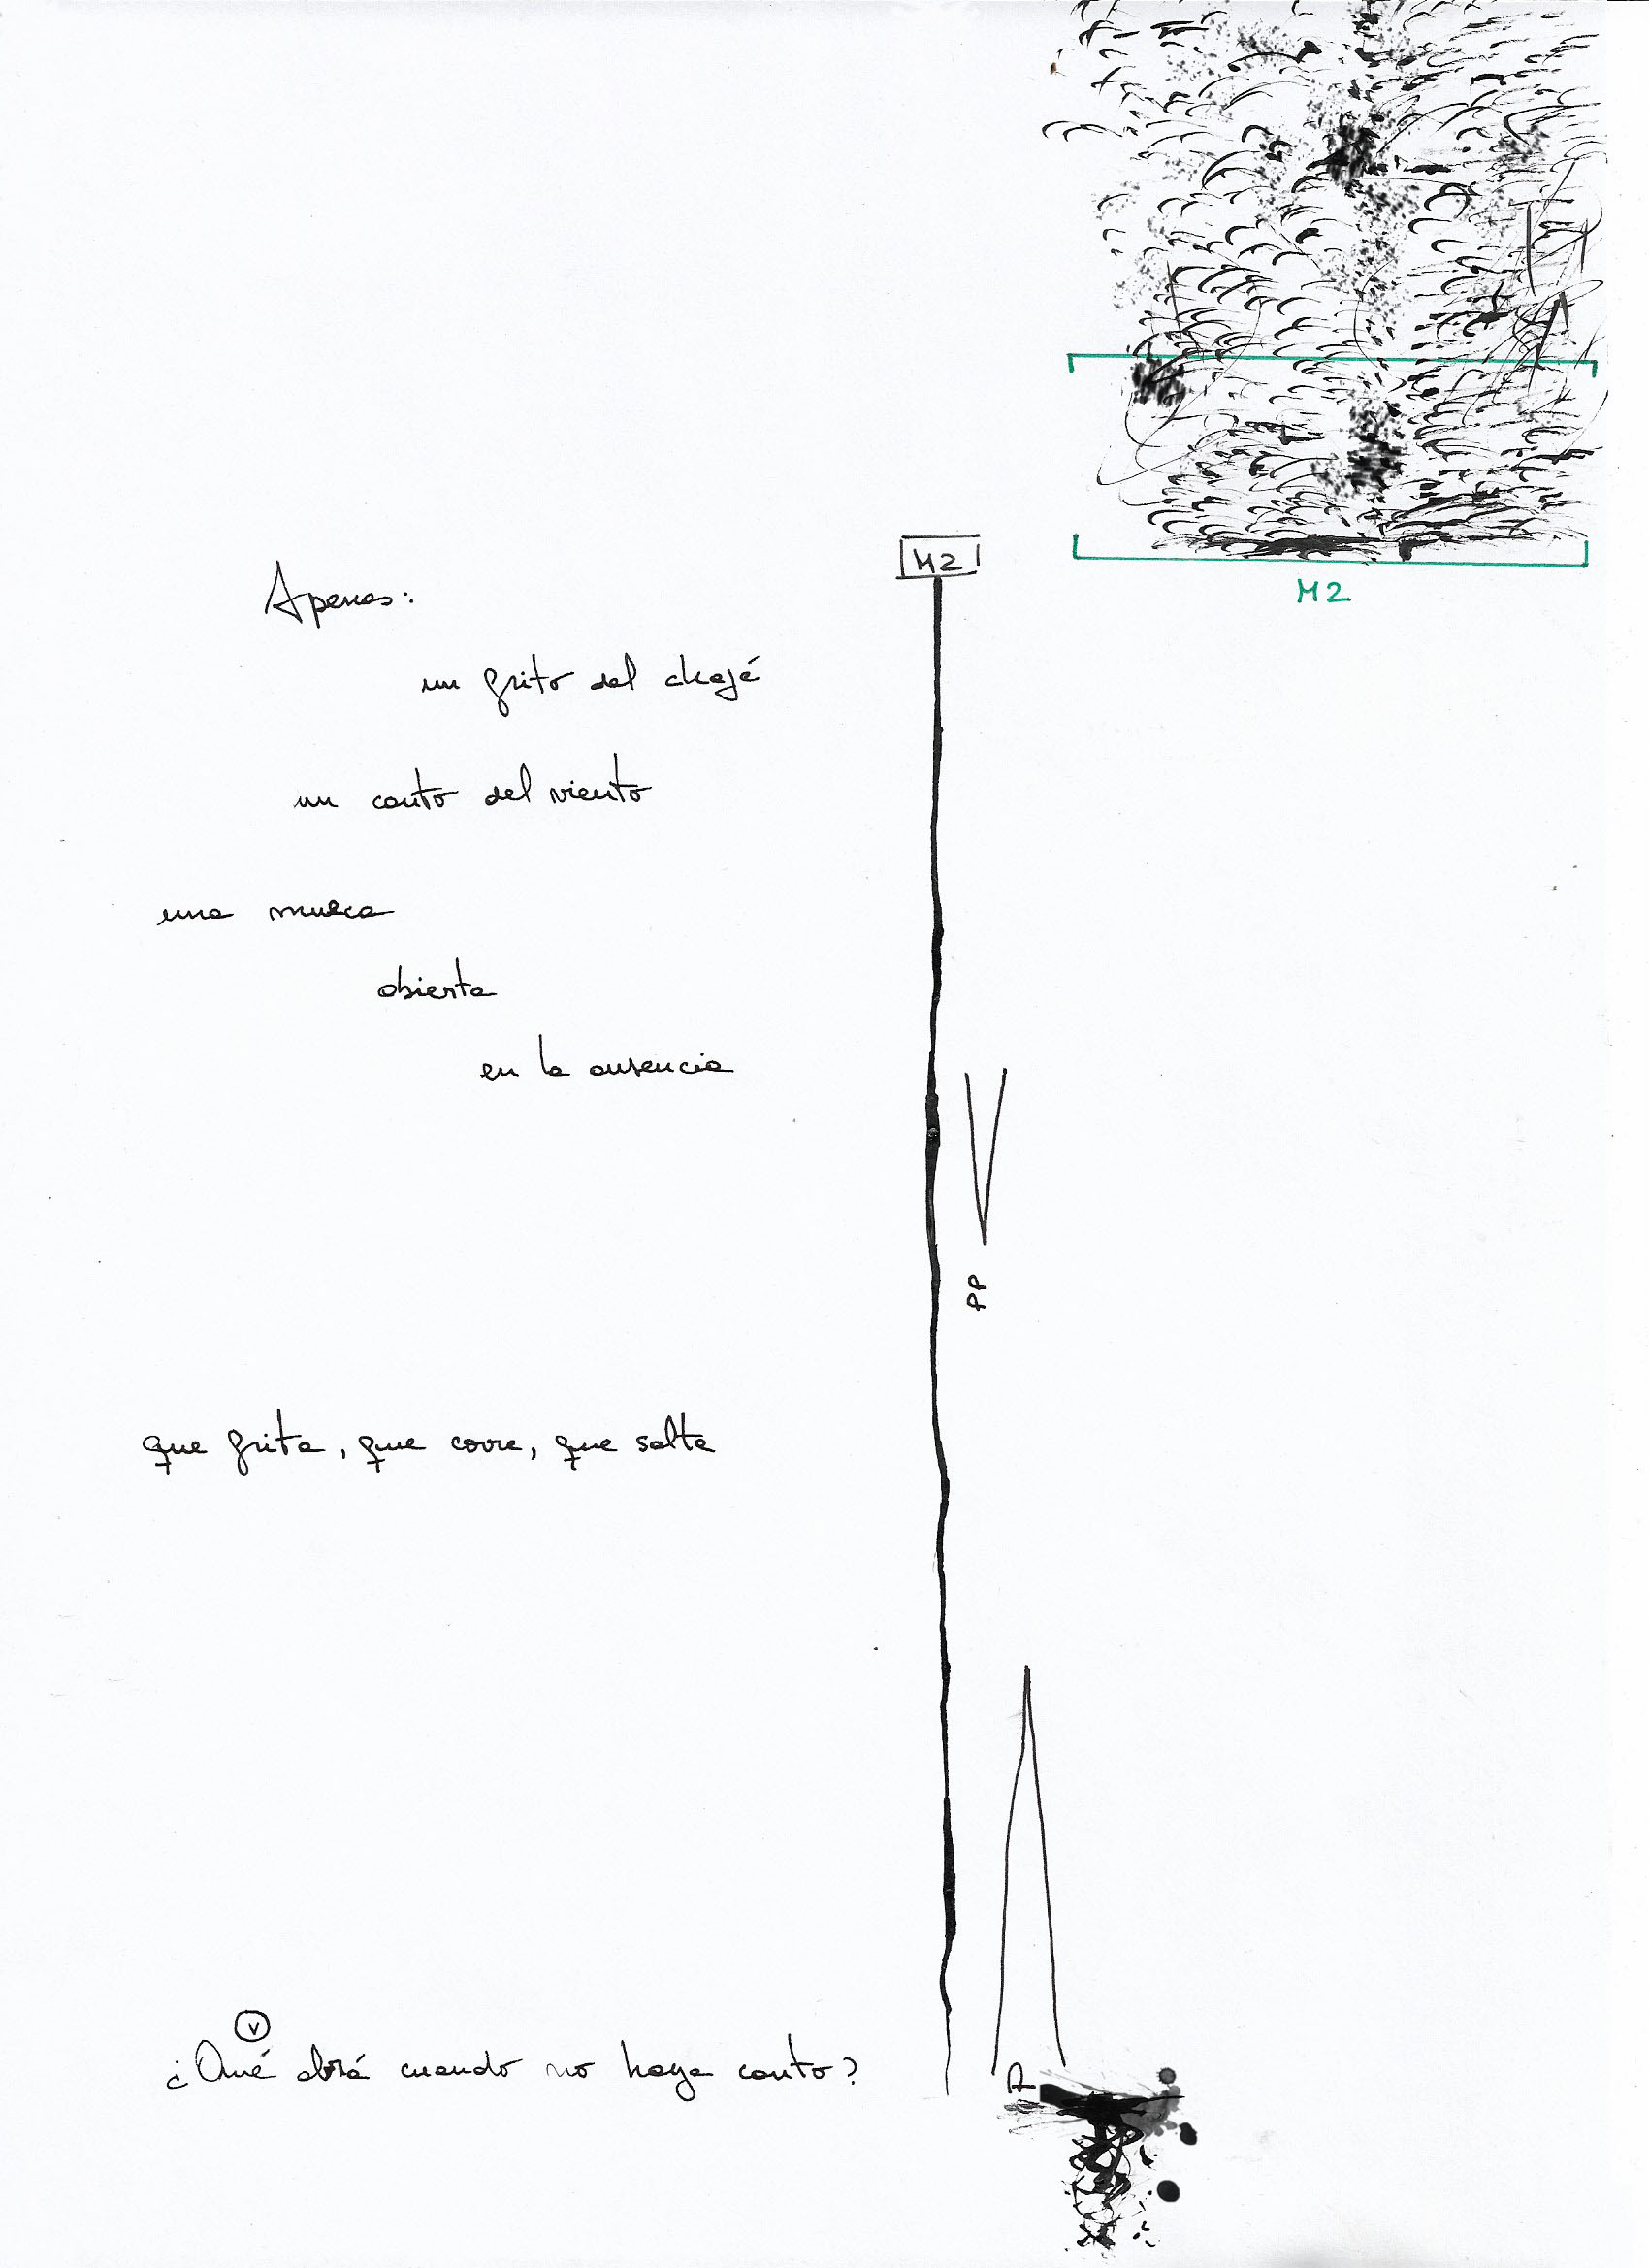 M2
M2
Apenas:
un grito del chajá
un canto del viento
una mueca
abierta
en la ausencia
PP
que grita, que corre, que salta
V
¿Qué abrá cuando no haya canto?